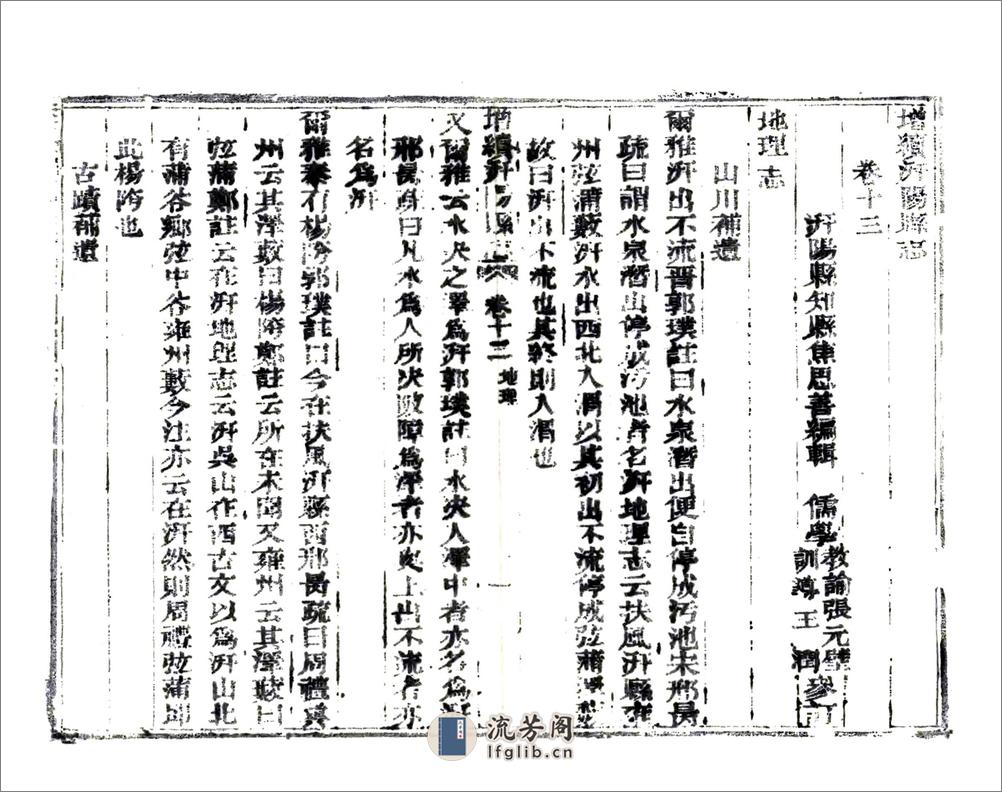 增續汧陽縣志
卷十三
汧陽縣知縣焦思善編輯 儒學教諭張元璧訓導王潤參訂
地理志
山川補遺
爾雅汧出不流晉郭璞註曰水泉潛出便自停成汚池宋邢昺
疏曰謂水泉潛出停成汚池者名汧地理志云扶風汧縣
州弦蒲藪汧水出西北入渭以其初出不流停成弦蒲澤藪
故曰汧出不流也其終則入渭也
增續汧陽縣志 卷十三 地理 一
又爾雅云水決之澤爲汧郭璞註曰水決入澤中者亦名爲汧
邢昺疏曰凡水爲人所決陂障爲澤者亦與上出不流者亦
名爲汧
爾雅秦有楊陓郭璞註曰今在扶風汧縣西邢昺疏曰周禮冀
州云其澤藪曰楊陓鄭註云所在未聞又雍州云其澤藪曰
弦蒲鄭註云在汧地理志云汧吳山在西古文以爲汧山北
有蒲谷鄉弦中谷雍州藪今注亦云在汧然則周禮弦蒲即
此楊陓也
古蹟補遺
流芳阁
lfglib.cn